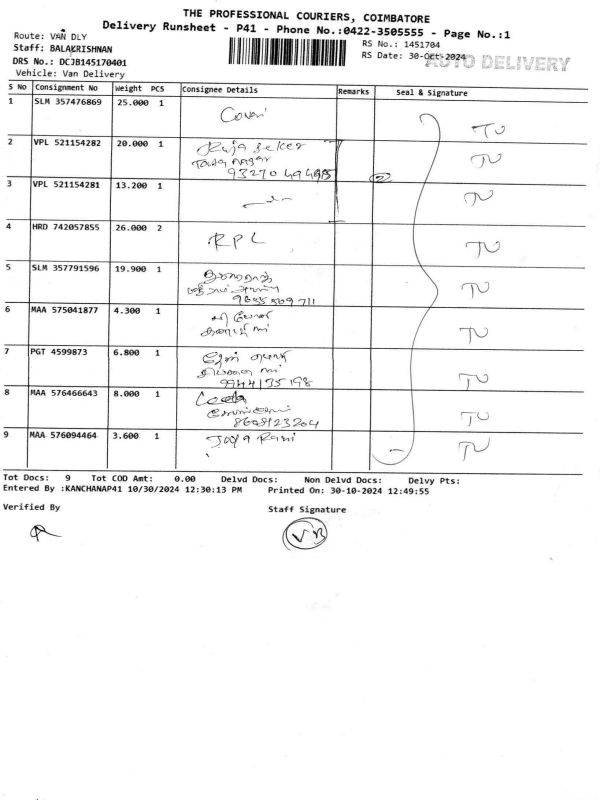 THE PROFESSIONAL COURIERS, COIMBATORE
Delivery Runsheet - P41 - Phone No.:0422-3505555 - Page No.:1
Route: VAN DLY
Staff: BALAKRISHNAN
DRS No.: DCJB145170401
Vehicle: Van Delivery
RS No.: 1451704
RS Date: 30-Oct-2024
AUTO DELIVERY
S No Consignment No Weight PCS Consignee Details Remarks Seal & Signature
1 SLM 357476869 25.000 1 Covai TU
2 VPL 521154282 20.000 1 Raja Seker TU
3 VPL 521154281 13.200 1 TU
4 HRD 742057855 26.000 2 RPL TU
5 SLM 357791596 19.900 1 TU
6 MAA 575041877 4.300 1 TU
7 PGT 4599873 6.800 1 TU
9944135198
8 MAA 576466643 8.000 1 TU
8608123204
9 MAA 576094464 3.600 1 Jaya Rani TU
Tot Docs: 9 Tot COD Amt: 0.00 Delvd Docs: Non Delvd Docs: Delvy Pts:
Entered By :KANCHANAP41 10/30/2024 12:30:13 PM Printed On: 30-10-2024 12:49:55
Verified By Staff Signature
VB